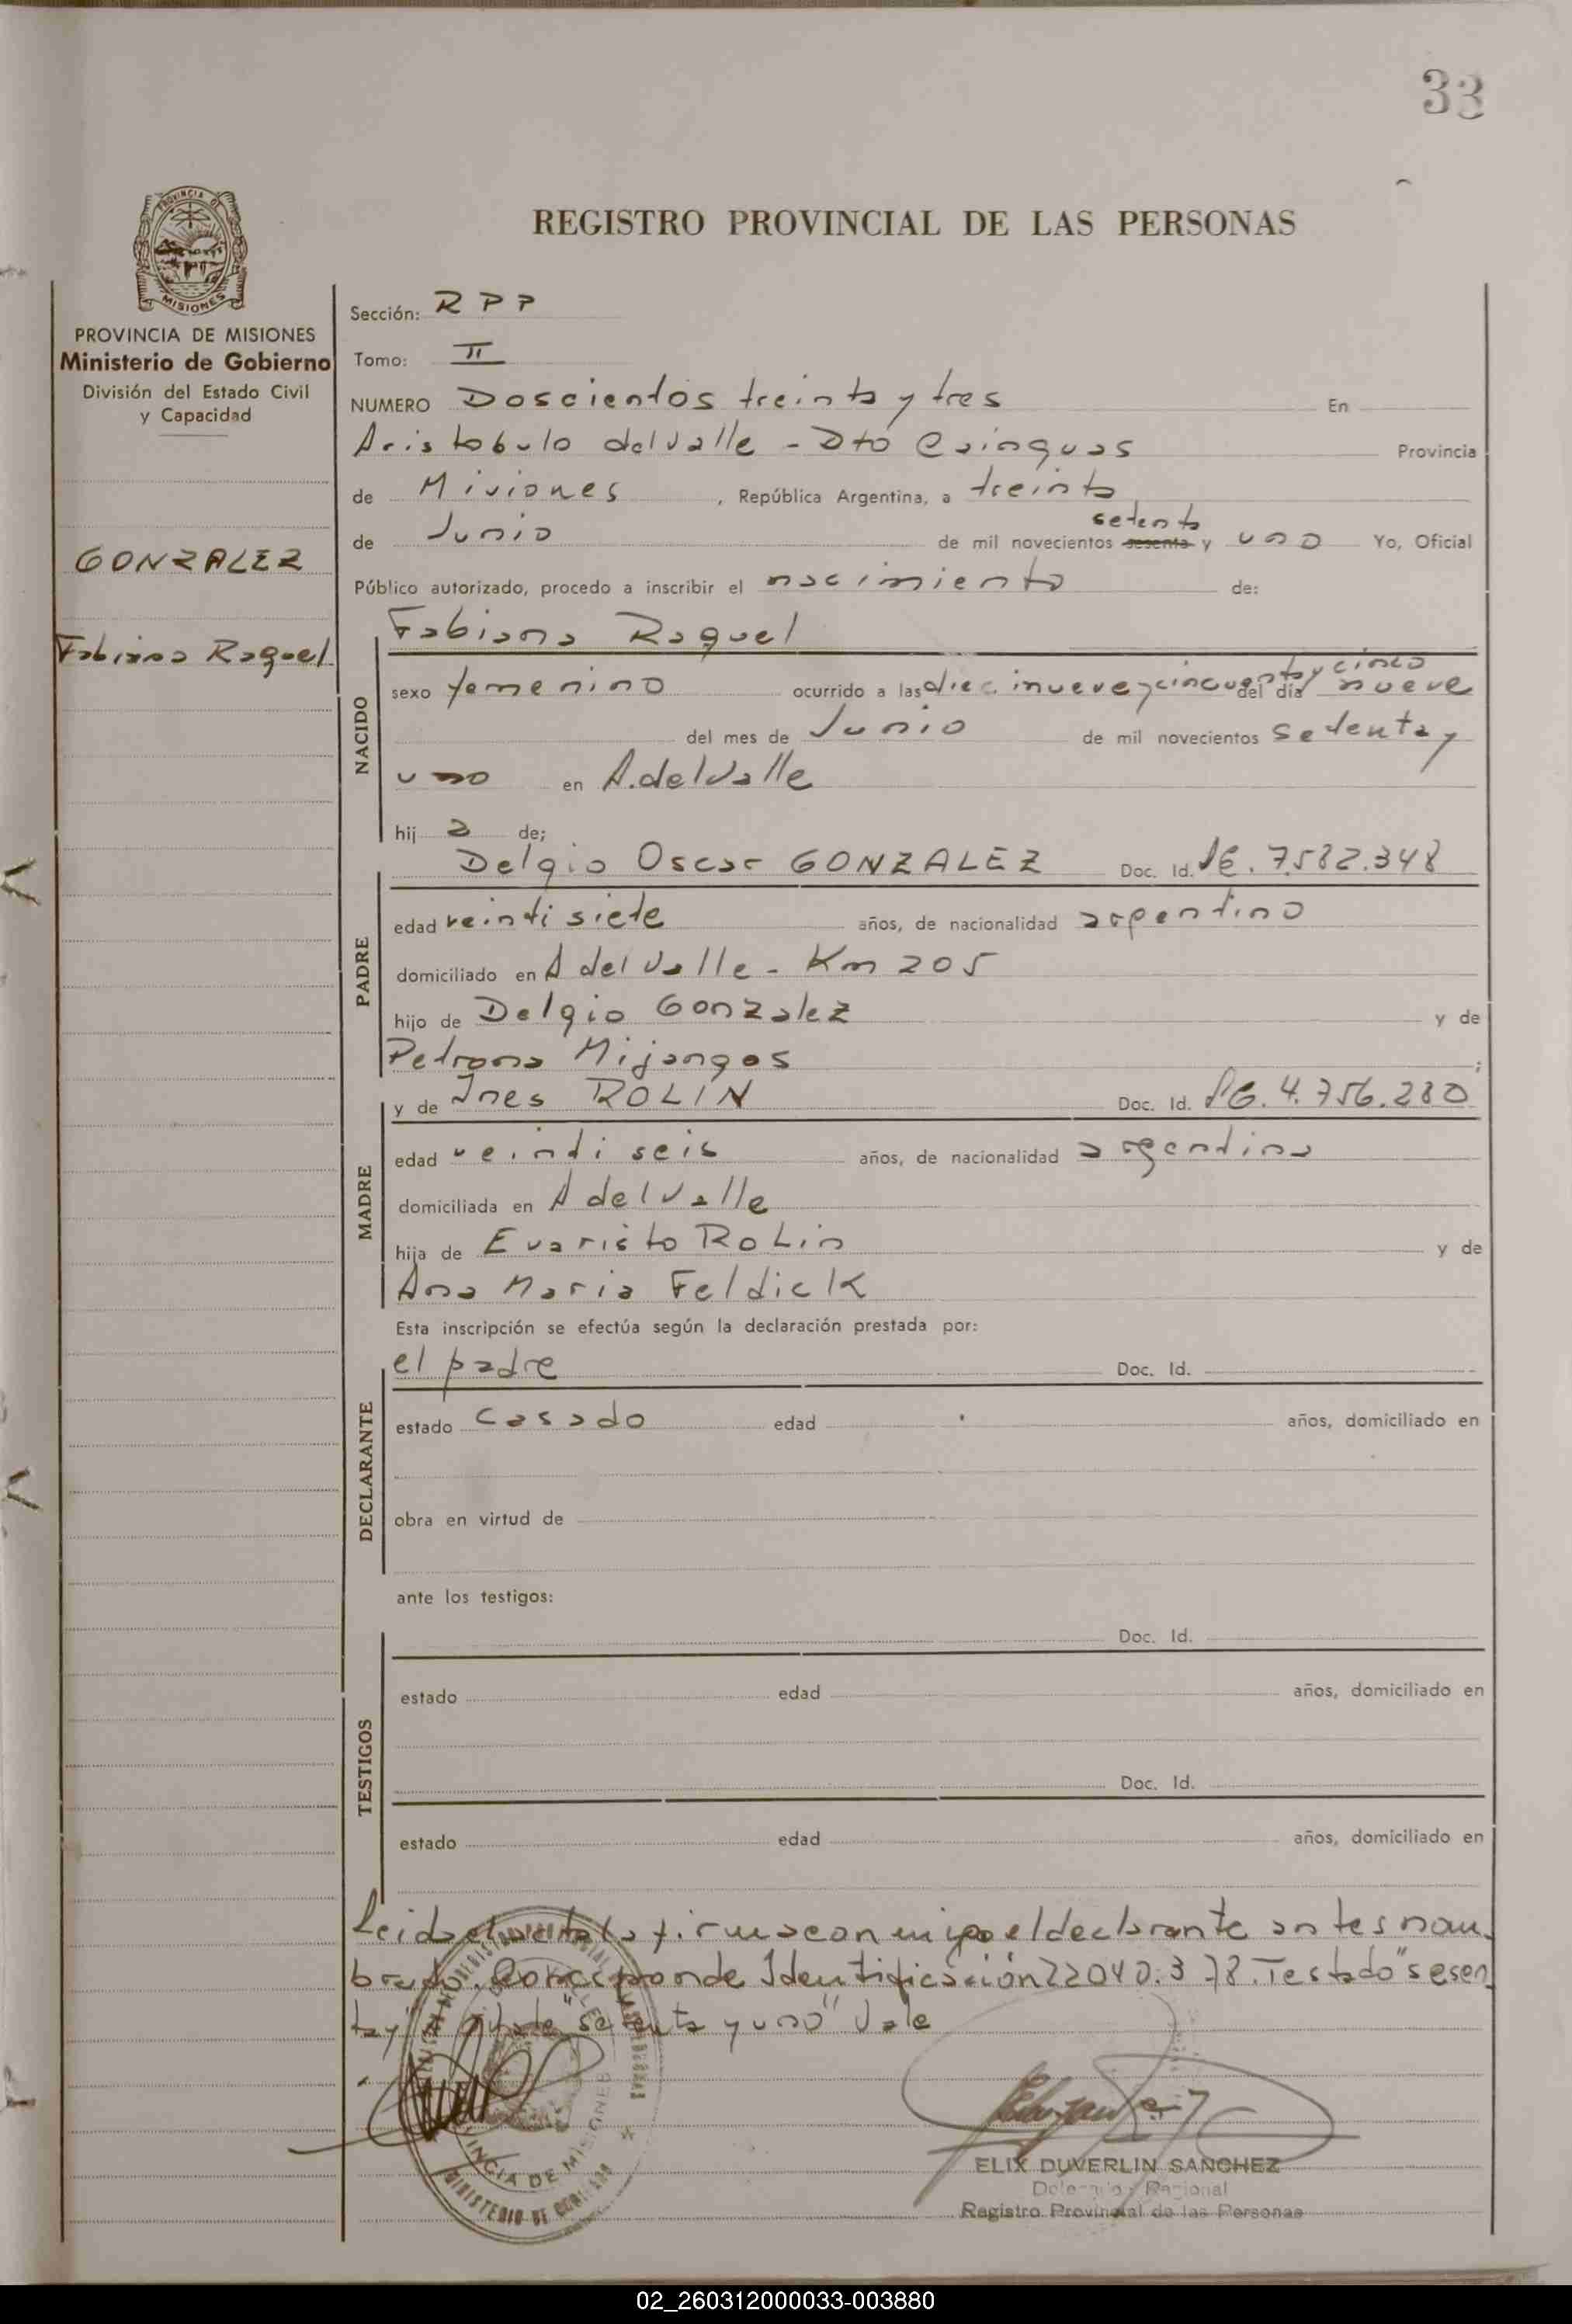 33
PROVINCIA DE
MISIONES
REGISTRO PROVINCIAL DE LAS PERSONAS
PROVINCIA DE MISIONES
Ministerio de Gobierno
División del Estado Civil
y Capacidad
GONZALEZ
Fabiana Raquel
Sección: R P P
Tomo: II
NUMERO Doscientos treinta y tres En
Aristobulo del Valle - Dto Cainguas Provincia
de Misiones, República Argentina, a treinta
setenta
de Junio de mil novecientos sesenta y uno Yo, Oficial
Público autorizado, procedo a inscribir el nacimiento de:
NACIDO
Fabiana Raquel
y cinco
sexo femenino ocurrido a las diecinueve y cincuenta del día nueve
del mes de Junio de mil novecientos setenta y
uno en A. del Valle
hij a de;
PADRE
Delgio Oscar GONZALEZ Doc. Id. LE. 7.582.348
edad veintisiete años, de nacionalidad argentino
domiciliado en A del Valle - Km 205
hijo de Delgio Gonzalez y de
Petrona Mijangos ;
MADRE
y de Ines ROLIN Doc. Id. 4.756.280
edad veintiseis años, de nacionalidad argentina
domiciliada en A del Valle
hija de Evaristo Rolin y de
Ana Maria Feldick
Esta inscripción se efectúa según la declaración prestada por:
DECLARANTE
el padre Doc. Id.
estado casado edad años, domiciliado en
obra en virtud de
ante los testigos:
TESTIGOS
Doc. Id.
estado edad años, domiciliado en
Doc. Id.
estado edad años, domiciliado en
Leida el acta la firma conmigo el declarante antes nom
brado. Corresponde Identificación 22040.378. Testado "sesen
ta y" "setenta y uno" Vale
PROVINCIA DE MISIONES
MINISTERIO DE GOBIERNO
ELIX DUVERLIN SANCHEZ
Delegado Regional
Registro Provincial de las Personas
02_260312000033-003880